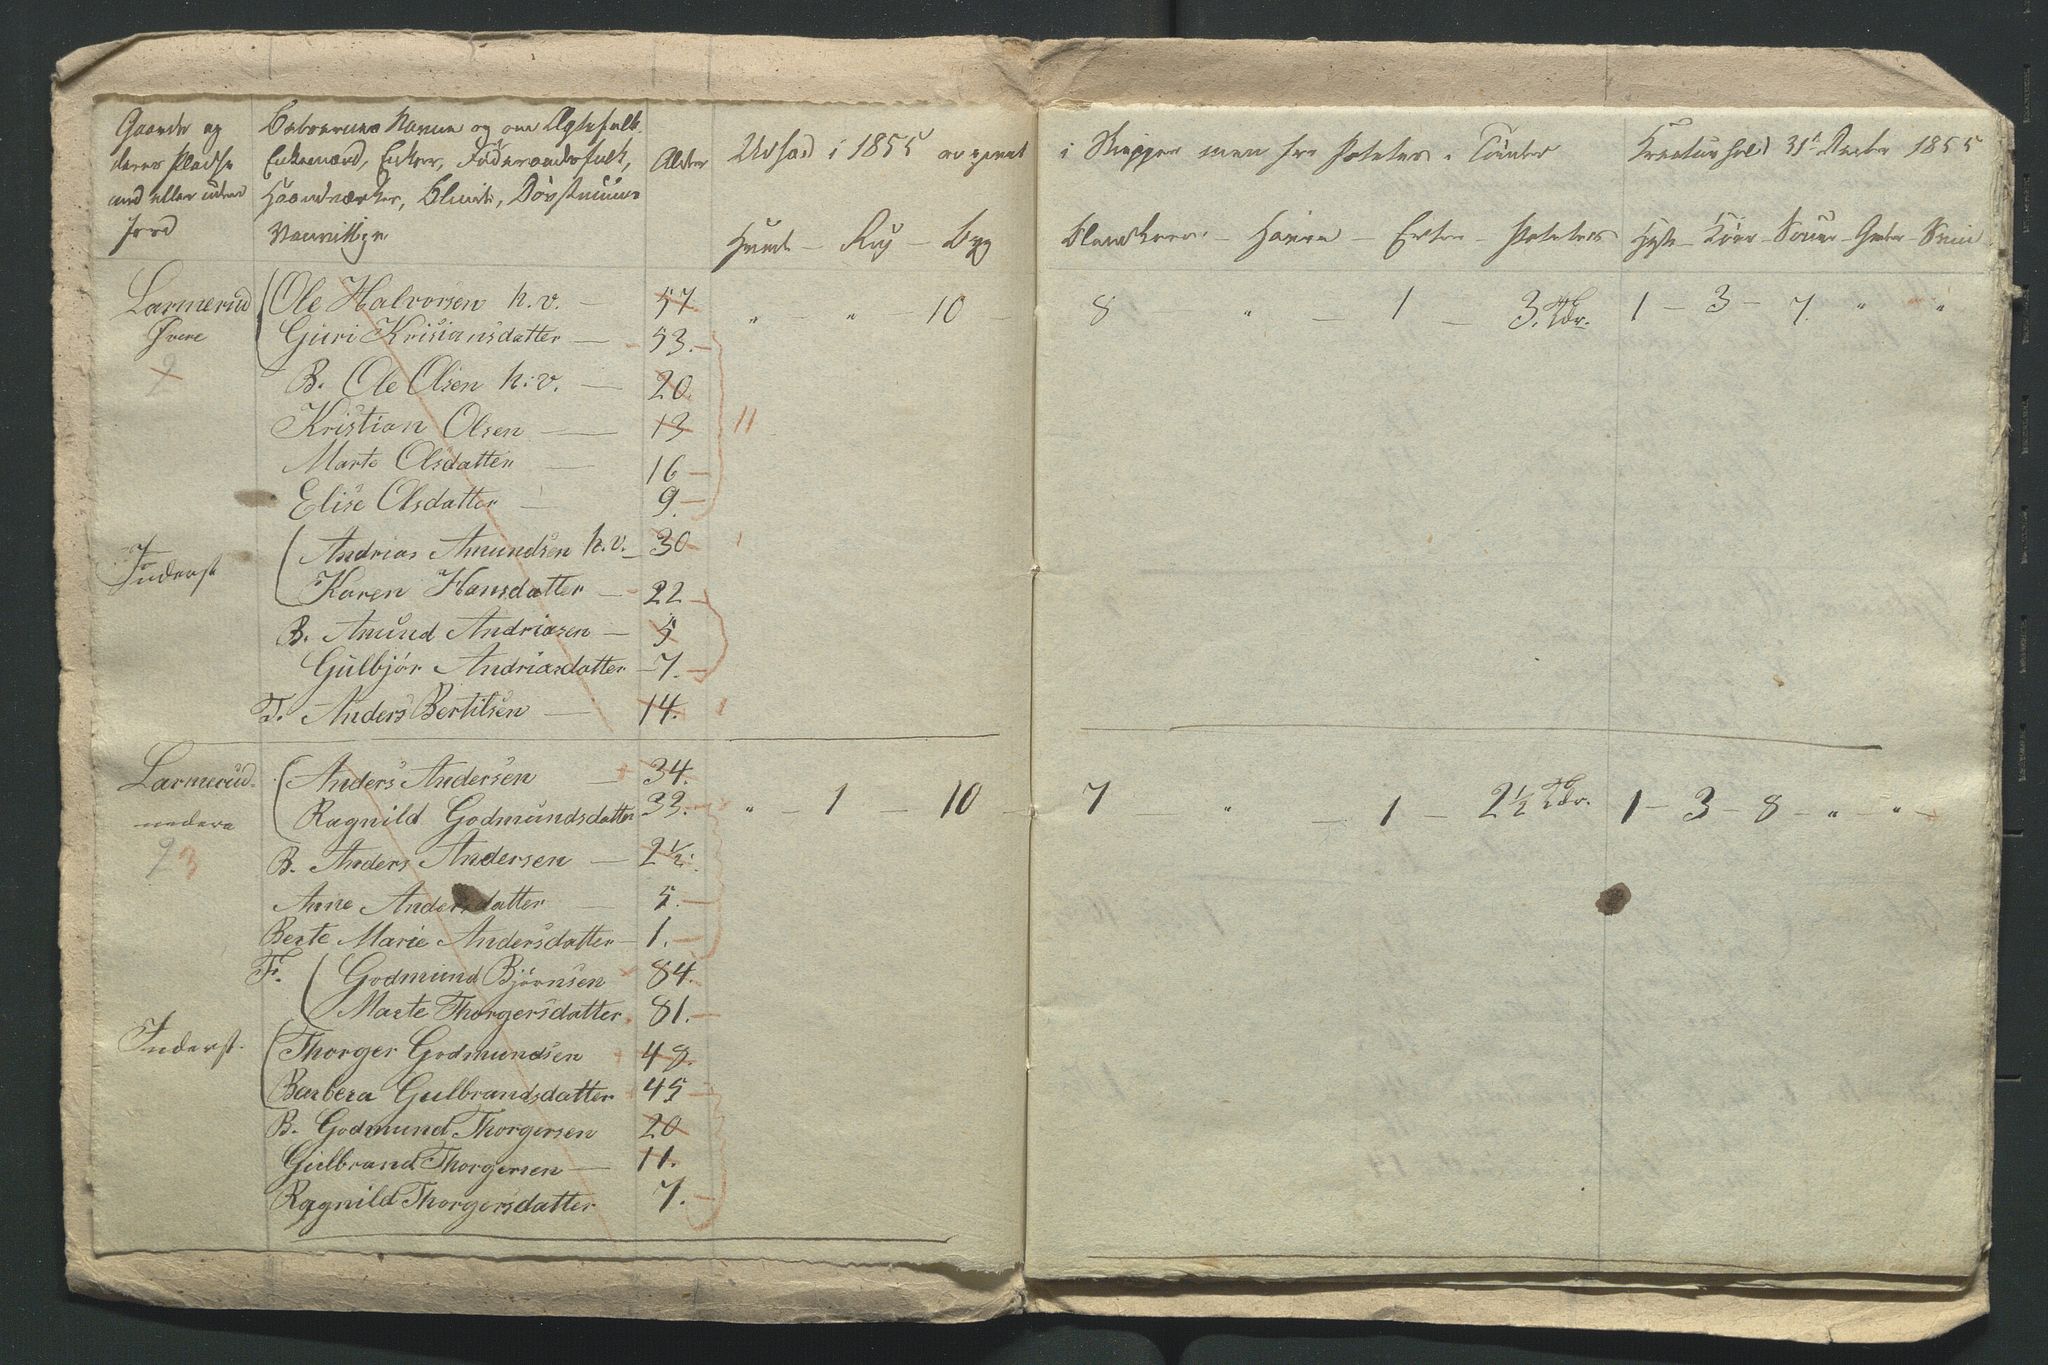 Gaarde og
deres Pladse
med eller uden
Jord
Beboernes Navne og om Ægtefolk
Enkemænd, Enker, Föderaadsfolk,
Haandværker, Blinde, Dövstumme
Vanvittige
Alder
Udsæd i 1855 beregnet
Hvede – Rug – Byg
i Skjepper men for Poteter i Tönder
Blandkorn – Havre – Erter – Poteter
Kreaturhold 31t Decbr 1855
Heste – Köer – Souer – Geder – Sviin
Larmerud
Övre
2
Ole Halvorsen h.v. — 57
" — " — 10 — 8 — " — 1 — 3. Tdr. 1 — 3 — 7. " "
Guri Kristiansdatter — 53.
B. Ole Olsen h.v. — 20.
Kristian Olsen — 13
11
Marte Olsdatter — 16
Elise Olsdatter — 9.
Inderst
Andrias Amundsen h.v. — 30
Karen Hansdatter — 22
B. Amund Andriasen — 5
Gulbjör Andriasdatter — 7.
T. Anders Bertilsen — 14.
Larmerud
nedere
2 3
Anders Andersen — 34.
Ragnild Godmundsdatter 33.
" — 1 — 10 — 7 — " — 1 — 2½ Tdr. 1 — 3 — 8 — " — " —
B. Anders Andersen — 2½.
Anne Andersdatter — 5.
Berte Marie Andersdatter — 1.
F. Godmund Björnsen 84.
Marte Thorgersdatter. 81.
Inderst.
Thorger Godmundsen 48.
Barbera Gulbrandsdatter 45
B. Godmund Thorgersen 20
Gulbrand Thorgersen — 11.
Ragnild Thorgersdatter 7.